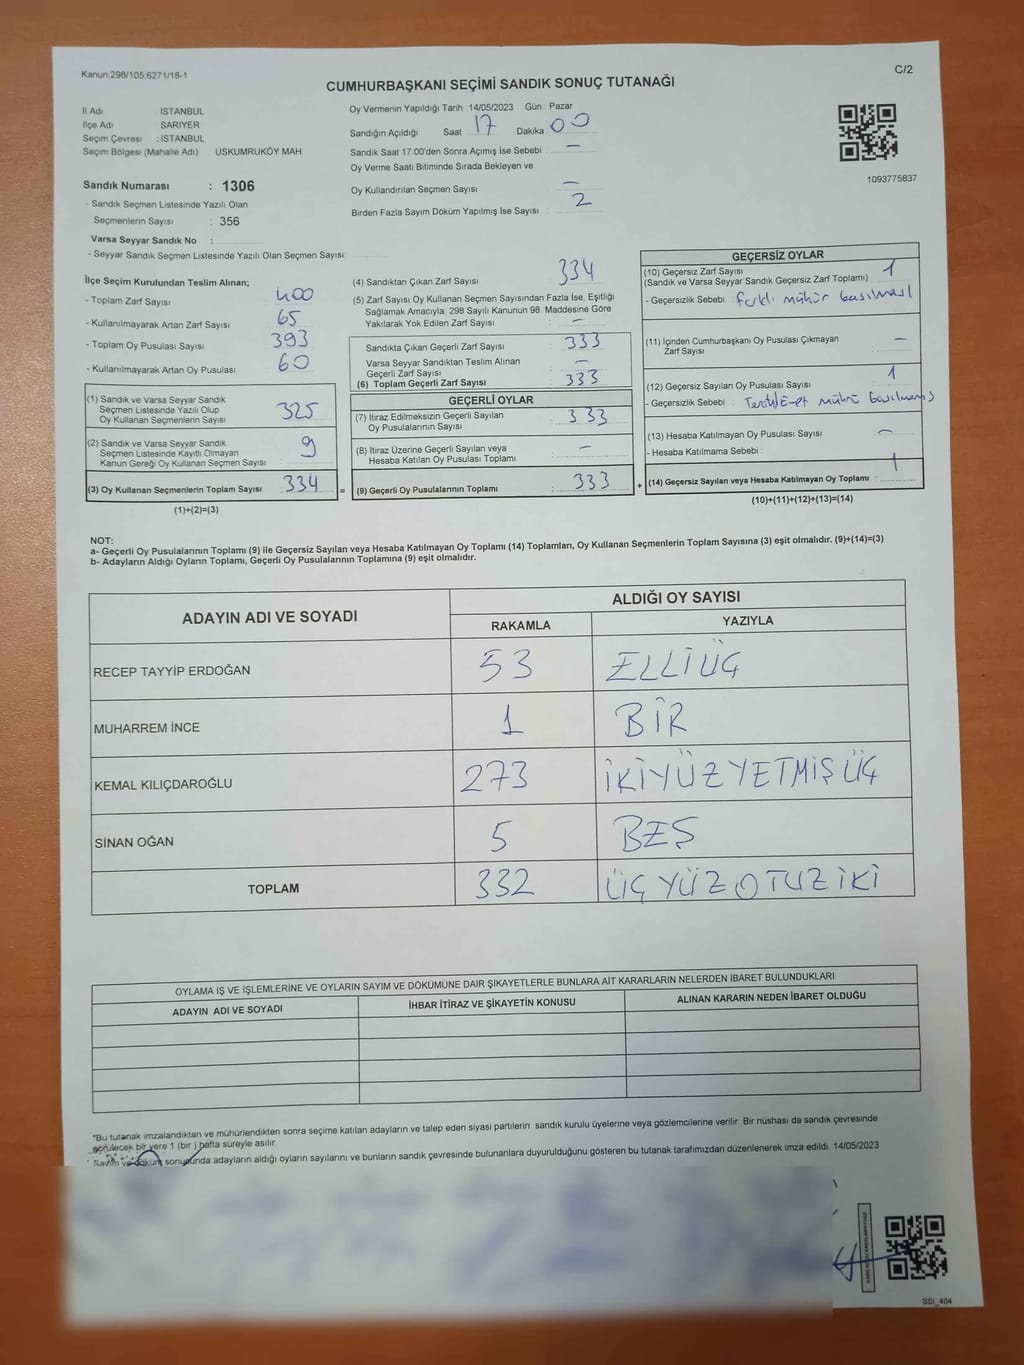 Kanun:298/105,6271/18-1
C/2
CUMHURBAŞKANI SEÇİMİ SANDIK SONUÇ TUTANAĞI
İl Adı İSTANBUL
İlçe Adı SARIYER
Seçim Çevresi : İSTANBUL
Seçim Bölgesi (Mahalle Adı) : USKUMRUKÖY MAH
Sandık Numarası : 1306
- Sandık Seçmen Listesinde Yazılı Olan
Seçmenlerin Sayısı : 356
Varsa Seyyar Sandık No :
- Seyyar Sandık Seçmen Listesinde Yazılı Olan Seçmen Sayısı :
Oy Vermenin Yapıldığı Tarih : 14/05/2023 Gün : Pazar
Sandığın Açıldığı Saat : 17 Dakika : 00
Sandık Saat 17:00'den Sonra Açımış İse Sebebi : —
Oy Verme Saati Bitiminde Sırada Bekleyen ve
Oy Kullandırılan Seçmen Sayısı : —
Birden Fazla Sayım Döküm Yapılmış İse Sayısı : 2
1093775837
İlçe Seçim Kurulundan Teslim Alınan;
- Toplam Zarf Sayısı : 400
- Kullanılmayarak Artan Zarf Sayısı : 65
- Toplam Oy Pusulası Sayısı : 393
- Kullanılmayarak Artan Oy Pusulası : 60
(1) Sandık ve Varsa Seyyar Sandık
Seçmen Listesinde Yazılı Olup
Oy Kullanan Seçmenlerin Sayısı : 325
(2) Sandık ve Varsa Seyyar Sandık
Seçmen Listesinde Kayıtlı Olmayan
Kanun Gereği Oy Kullanan Seçmen Sayısı : 9
(3) Oy Kullanan Seçmenlerin Toplam Sayısı : 334
(1)+(2)=(3)
(4) Sandıktan Çıkan Zarf Sayısı : 334
(5) Zarf Sayısı Oy Kullanan Seçmen Sayısından Fazla İse, Eşitliği
Sağlamak Amacıyla; 298 Sayılı Kanunun 98. Maddesine Göre
Yakılarak Yok Edilen Zarf Sayısı : —
Sandıkta Çıkan Geçerli Zarf Sayısı : 333
Varsa Seyyar Sandıktan Teslim Alınan
Geçerli Zarf Sayısı : —
(6) Toplam Geçerli Zarf Sayısı : 333
GEÇERLİ OYLAR
(7) İtiraz Edilmeksizin Geçerli Sayılan
Oy Pusulalarının Sayısı : 333
(8) İtiraz Üzerine Geçerli Sayılan veya
Hesaba Katılan Oy Pusulası Toplamı : —
= (9) Geçerli Oy Pusulalarının Toplamı : 333
GEÇERSİZ OYLAR
(10) Geçersiz Zarf Sayısı : 1
(Sandık ve Varsa Seyyar Sandık Geçersiz Zarf Toplamı)
- Geçersizlik Sebebi : Farklı mühür basılması
(11) İçinden Cumhurbaşkanı Oy Pusulası Çıkmayan
Zarf Sayısı : —
(12) Geçersiz Sayılan Oy Pusulası Sayısı : 1
- Geçersizlik Sebebi : mührü basılmamış
(13) Hesaba Katılmayan Oy Pusulası Sayısı : —
- Hesaba Katılmama Sebebi :
+ (14) Geçersiz Sayılan veya Hesaba Katılmayan Oy Toplamı : 1
(10)+(11)+(12)+(13)=(14)
NOT:
a- Geçerli Oy Pusulalarının Toplamı (9) ile Geçersiz Sayılan veya Hesaba Katılmayan Oy Toplamı (14) Toplamları, Oy Kullanan Seçmenlerin Toplam Sayısına (3) eşit olmalıdır. (9)+(14)=(3)
b- Adayların Aldığı Oyların Toplamı, Geçerli Oy Pusulalarının Toplamına (9) eşit olmalıdır.
ADAYIN ADI VE SOYADI ALDIĞI OY SAYISI
RAKAMLA YAZIYLA
RECEP TAYYİP ERDOĞAN 53 ELLİÜÇ
MUHARREM İNCE 1 BİR
KEMAL KILIÇDAROĞLU 273 İKİYÜZYETMİŞÜÇ
SİNAN OĞAN 5 BEŞ
TOPLAM 332 ÜÇYÜZOTUZİKİ
OYLAMA İŞ VE İŞLEMLERİNE VE OYLARIN SAYIM VE DÖKÜMÜNE DAİR ŞİKAYETLERLE BUNLARA AİT KARARLARIN NELERDEN İBARET BULUNDUKLARI
ADAYIN ADI VE SOYADI İHBAR İTİRAZ VE ŞİKAYETİN KONUSU ALINAN KARARIN NEDEN İBARET OLDUĞU
*Bu tutanak imzalandıktan ve mühürlendikten sonra seçime katılan adayların ve talep eden siyasi partilerin sandık kurulu üyelerine veya gözlemcilerine verilir. Bir nüshası da sandık çevresinde
görülecek bir yere 1 (bir ) hafta süreyle asılır.
Sayım ve döküm sonucunda adayların aldığı oyların sayılarını ve bunların sandık çevresinde bulunanlara duyurulduğunu gösteren bu tutanak tarafımızdan düzenlenerek imza edildi. 14/05/2023
SSİ_404